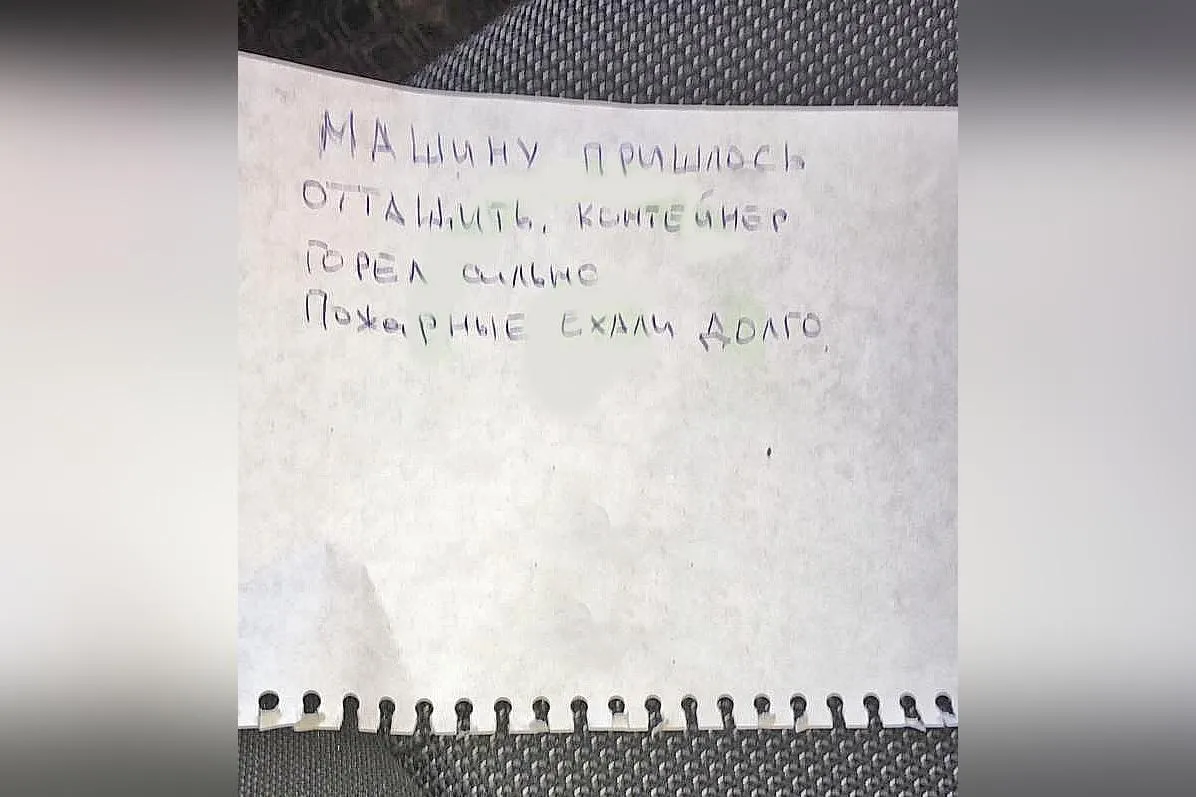 МАШИНУ ПРИШЛОСЬ
ОТТАЩИТЬ. КОНТЕЙНЕР
ГОРЕЛ СИЛЬНО
ПОЖАРНЫЕ ЕХАЛИ ДОЛГО.